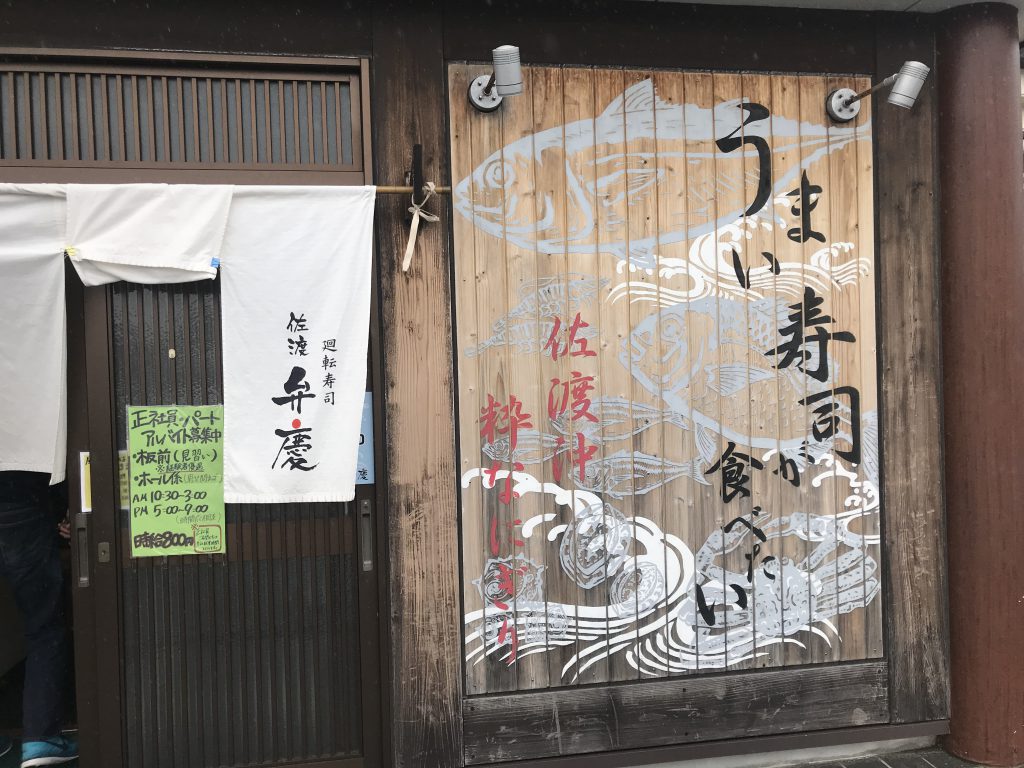 うまい寿司が
食べたい
佐渡沖
粋なにぎり
廻転寿司
佐渡
弁慶
正社員・パート
アルバイト募集中
・板前(見習い)
・ホール係
AM 10:30-3:00
PM 5:00-9:00
時給800円